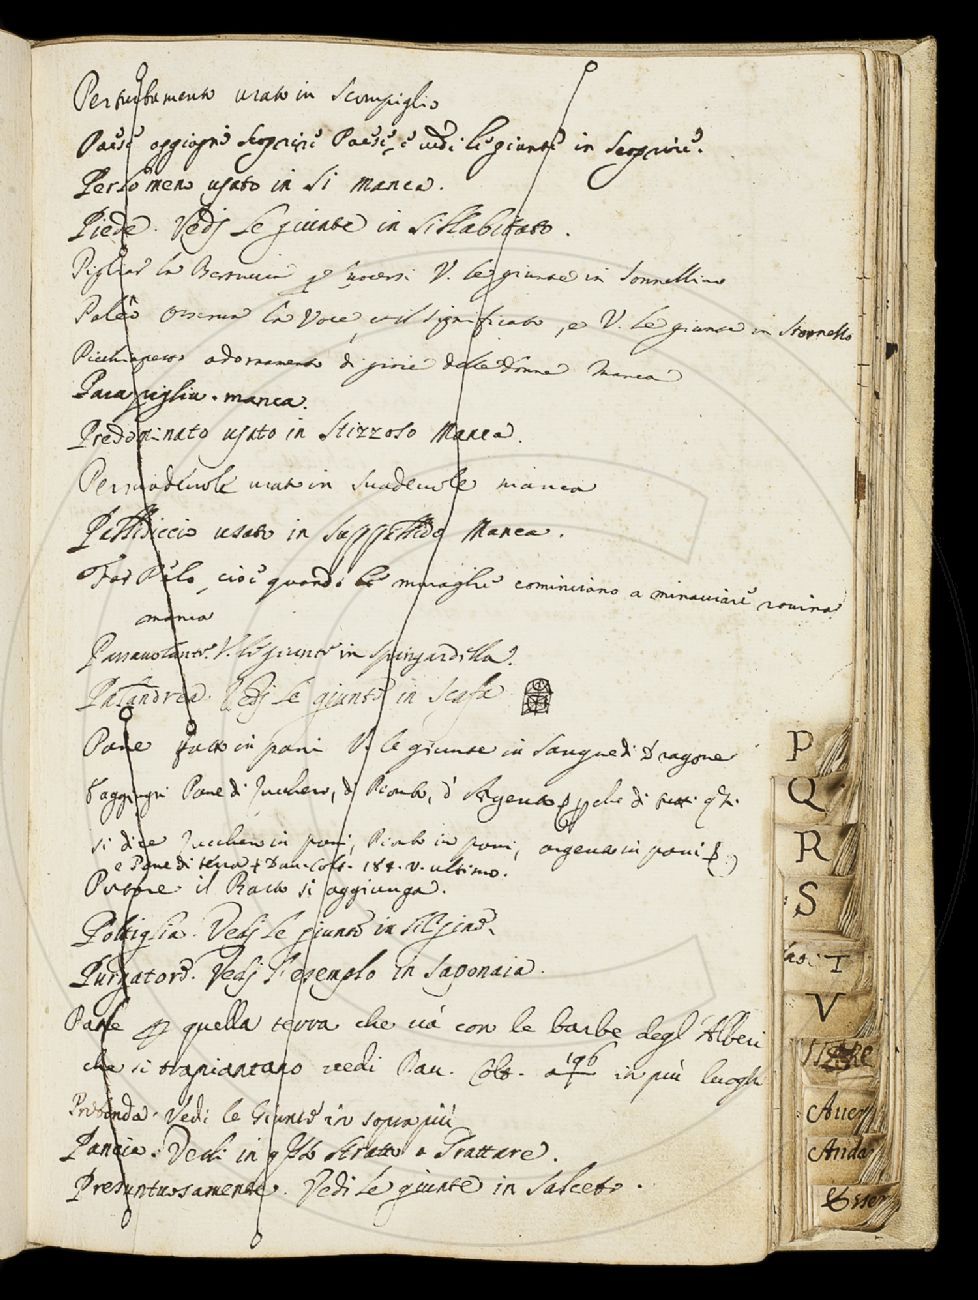 Perturbamento usato in Scompiglio
Paesi aggiogni Scoprire Paesi, e vedi le giunte in Scoprire.
Perlomeno usato in Si manca.
Piede. Vedj Le giunte in Sillabicato.
Pigliar la Bertuccia p V. le giunte in Sonnellino
Paleo Osserva la Voce, et il significato, e V. Le giunte in Stornello
Picchiapetto adornamento di gioie delle donne Manca
Parapiglia. manca.
Predominato usato in Stizzoso Manca.
Persuadevole usato in Suadevole manca
Pelliccio usato in Manca.
Far Pelo, cioè quando le muraglie cominciano a minacciare rovina
manca
Passavolante. V. le giunte in Spingardella.
Palandrea. Vedj Le giunte in Scafa
Pane fatto in pani V. le giunte in Sangue di Dragone
s'aggiungi Pane di Zucchero, di Piombo, d'Argento che di tutti
si dice Zucchero in pani, Piombo in pani, argento in pani
e Pane di terra + Dav. Colt. 184. v. ultimo.
Putore. il Bacto si aggiunga.
Poltiglia. Vedj Le giunte in
Purgatore. Vedj l'esemplo in Saponaia.
Pane p quella terra che và con le barbe degl'Alberi
che si trapiantano vedi Dav. Colt. a 196 in più luoghi
Profonda. Vedi le Giunte in Sopra più
Pancia. Vedi in Stratto o Trattare.
Presuntuosamente. Vedi Le giunte in Salceto.
P
Q
R
S
T
V
Aver
Anda
Esser